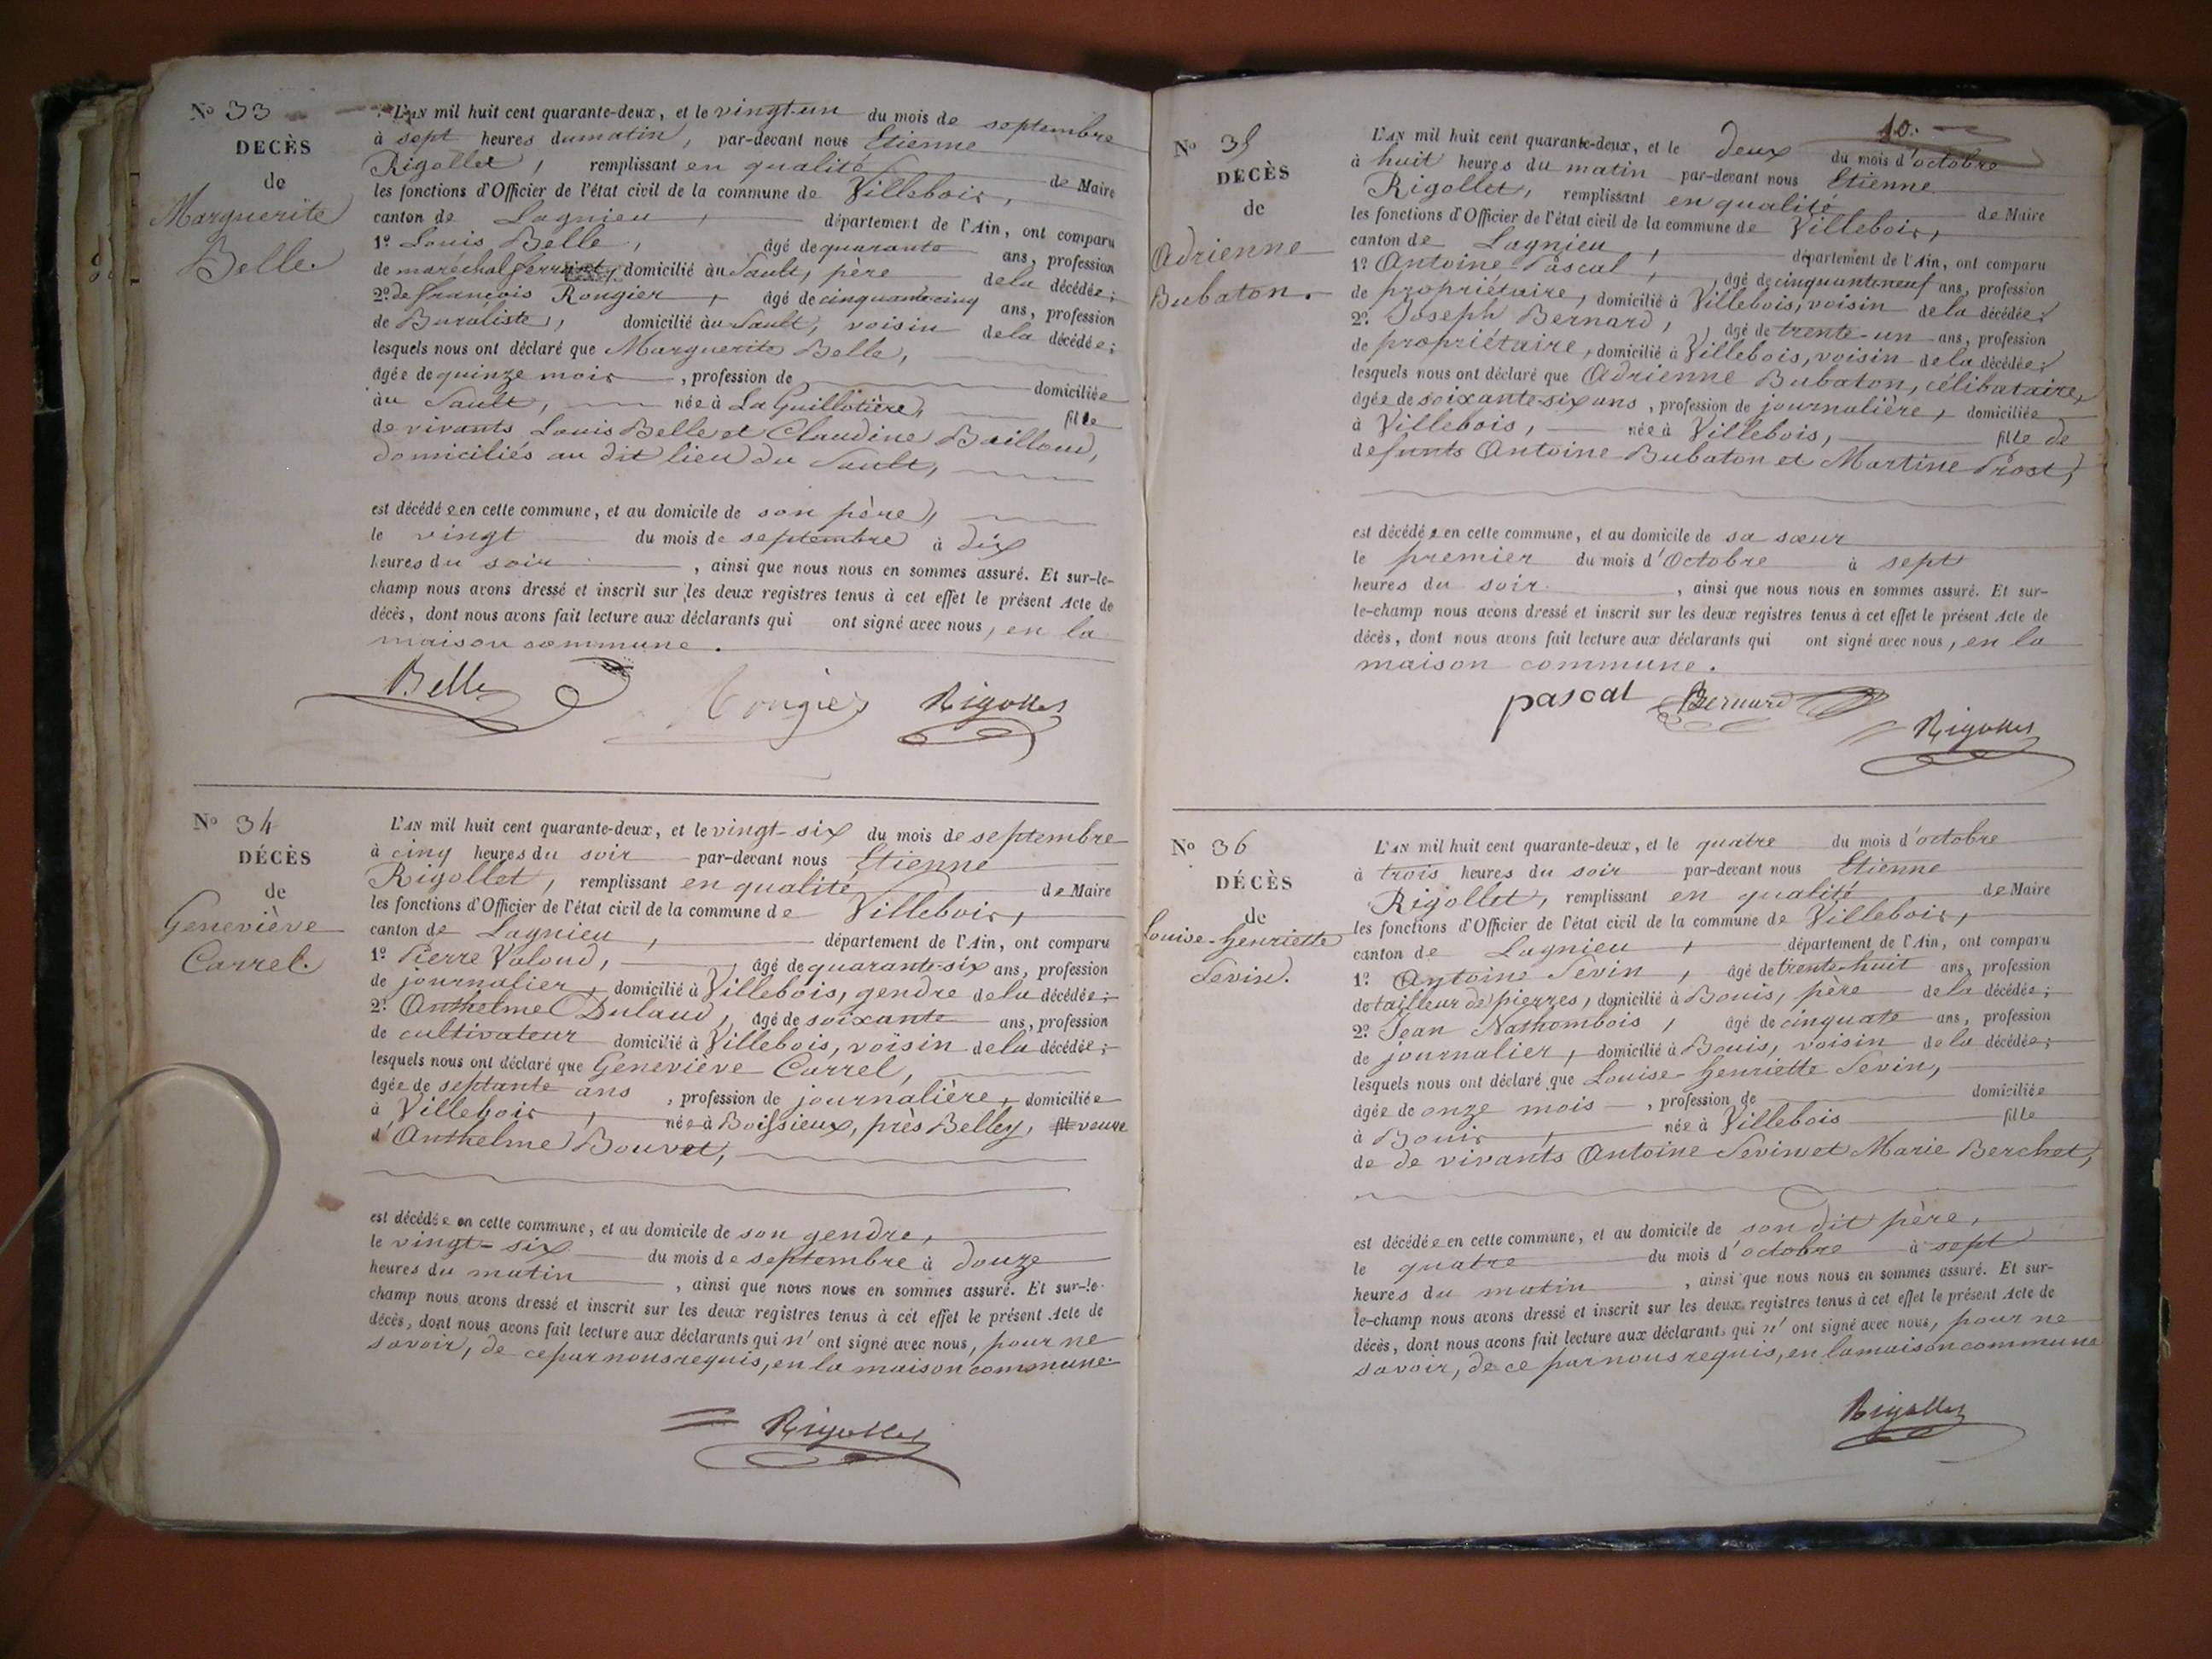 N° 33
DÉCÈS
de
Marguerite
Belle.
L'AN mil huit cent quarante-deux, et le vingt-un du mois de septembre
à sept heures du matin, par-devant nous Etienne
Rigollet, remplissant en qualité de Maire
les fonctions d'Officier de l'état civil de la commune de Villebois,
canton de Lagnieu, département de l'Ain, ont comparu
1° Louis Belle, âgé de quarante ans, profession
de maréchal ferrant, domicilié au Sault, père de la décédée;
2° de françois Rongier, âgé de cinquante cinq ans, profession
de Buraliste, domicilié au Sault, voisin de la décédée;
lesquels nous ont déclaré que Marguerite Belle,
âgée de quinze mois, profession de domiciliée
au Sault, née à La Guillotière, fille
de vivants Louis Belle et Claudine Bailloud,
domiciliés au dit lieu du Sault,
est décédée en cette commune, et au domicile de son père,
le vingt du mois de septembre à dix
heures du soir, ainsi que nous nous en sommes assuré. Et sur-le-
champ nous avons dressé et inscrit sur les deux registres tenus à cet effet le présent Acte de
décès, dont nous avons fait lecture aux déclarants qui ont signé avec nous, en la
maison commune.
Belle Rongier Rigollet
N° 34
DÉCÈS
de
Geneviève
Carrel.
L'AN mil huit cent quarante-deux, et le vingt-six du mois de septembre
à cinq heures du soir par-devant nous Etienne
Rigollet, remplissant en qualité de Maire
les fonctions d'Officier de l'état civil de la commune de Villebois,
canton de Lagnieu, département de l'Ain, ont comparu
1° Pierre Valoud, âgé de quarante-six ans, profession
de journalier, domicilié à Villebois, gendre de la décédée;
2° Anthelme Dulaud, âgé de soixante ans, profession
de cultivateur domicilié à Villebois, voisin de la décédée;
lesquels nous ont déclaré que Geneviève Carrel,
âgée de septante ans, profession de journalière, domiciliée
à Villebois, née à Boissieux, près Belley, veuve
d'Anthelme Bouvet,
est décédée en cette commune, et au domicile de son gendre,
le vingt-six du mois de septembre à douze
heures du matin, ainsi que nous nous en sommes assuré. Et sur-le-
champ nous avons dressé et inscrit sur les deux registres tenus à cet effet le présent Acte de
décès, dont nous avons fait lecture aux déclarants qui n'ont signé avec nous, pour ne
savoir, de ce par nous requis, en la maison commune.
Rigollet
10.
N° 35
DÉCÈS
de
Adrienne
Bubaton.
L'AN mil huit cent quarante-deux, et le deux du mois d'octobre
à huit heures du matin par-devant nous Etienne
Rigollet, remplissant en qualité de Maire
les fonctions d'Officier de l'état civil de la commune de Villebois,
canton de Lagnieu, département de l'Ain, ont comparu
1° Antoine Pascal, âgé de cinquante neuf ans, profession
de propriétaire, domicilié à Villebois, voisin de la décédée;
2° Joseph Bernard, âgé de trente-un ans, profession
de propriétaire, domicilié à Villebois, voisin de la décédée;
lesquels nous ont déclaré que Adrienne Bubaton, célibataire,
âgée de soixante-six ans, profession de journalière, domiciliée
à Villebois, née à Villebois, fille de
defunts Antoine Bubaton et Martine Prost,
est décédée en cette commune, et au domicile de sa sœur
le premier du mois d'Octobre à sept
heures du soir, ainsi que nous nous en sommes assuré. Et sur-
le-champ nous avons dressé et inscrit sur les deux registres tenus à cet effet le présent Acte de
décès, dont nous avons fait lecture aux déclarants qui ont signé avec nous, en la
maison commune.
pascal Bernard
Rigollet
N° 36
DÉCÈS
de
Louise-henriette
Sevin.
L'AN mil huit cent quarante-deux, et le quatre du mois d'octobre
à trois heures du soir par-devant nous Etienne
Rigollet, remplissant en qualité de Maire
les fonctions d'Officier de l'état civil de la commune de Villebois,
canton de Lagnieu, département de l'Ain, ont comparu
1° Antoine Sevin, âgé de trente-huit ans, profession
de tailleur de pierres, domicilié à Bouis, père de la décédée;
2° Jean Nathombois, âgé de cinquate ans, profession
de journalier, domicilié à Bouis, voisin de la décédée;
lesquels nous ont déclaré que Louise-henriette Sevin,
âgée de onze mois, profession de domiciliée
à Bouis, née à Villebois fille
de de vivants Antoine Sevin et Marie Berchet,
est décédée en cette commune, et au domicile de son dit père,
le quatre du mois d'octobre à sept
heures du matin, ainsi que nous nous en sommes assuré. Et sur-
le-champ nous avons dressé et inscrit sur les deux registres tenus à cet effet le présent Acte de
décès, dont nous avons fait lecture aux déclarants qui n'ont signé avec nous, pour ne
savoir, de ce par nous requis, en la maison commune
Rigollet